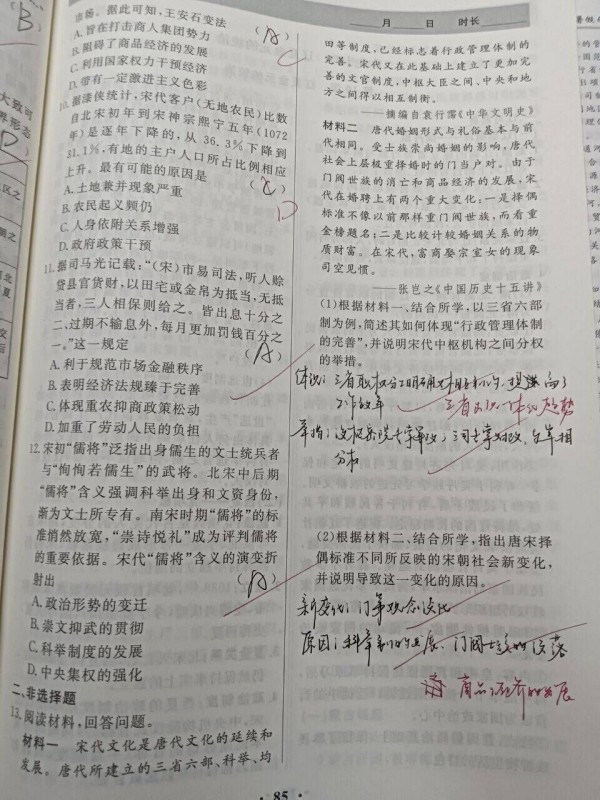 市场。据此可知,王安石变法
A.旨在打击商人集团势力 (A)
B.阻碍了商品经济的发展 C
C.利用国家权力干预经济
D.带有一定激进主义色彩
10.据漆侠统计,宋代客户(无地农民)比数
自北宋初年到宋神宗熙宁五年(1072
年)是逐年下降的,从36.3%下降到
31.1%,有地的主户人口所占比例相应
上升。最有可能的原因是
A.土地兼并现象严重 D
B.农民起义频仍
C.人身依附关系增强
D.政府政策干预
11.据司马光记载:“(宋)市易司法,听人赊
贷县官货财,以田宅或金帛为抵当,无抵
当者,三人相保则给之。皆出息十分之
二,过期不输息外,每月更加罚钱百分之
一。”这一规定 (A)
A.利于规范市场金融秩序
B.表明经济法规臻于完善
C.体现重农抑商政策松动
D.加重了劳动人民的负担
12.宋初“儒将”泛指出身儒生的文士统兵者
与“恂恂若儒生”的武将。北宋中后期
“儒将”含义强调科举出身和文资身份,
渐为文士所专有。南宋时期“儒将”的标
准悄然放宽,“崇诗悦礼”成为评判儒将
的重要依据。宋代“儒将”含义的演变折
射出 (A)
A.政治形势的变迁
B.崇文抑武的贯彻
C.科举制度的发展
D.中央集权的强化
二、非选择题
13.阅读材料,回答问题。
材料一 宋代文化是唐代文化的延续和
发展。唐代所建立的三省六部、科举、均
85
月 日 时长
田等制度,已经标志着行政管理体制的
完善。宋代又在此基础上建立了更加完
善的文官制度,中枢大臣之间、中央和地
方之间得以相互制衡。
——摘编自袁行霈《中华文明史》
材料二 唐代婚姻形式与礼俗基本与前
代相同。受士族崇尚婚姻的影响,唐代
社会上层极重择婚时的门当户对。由于
门阀世族的消亡和商品经济的发展,宋
代在婚聘上有两个重大变化:一是择偶
标准不像以前那样重门阀世族,而看重
金榜题名;二是比较计较婚姻关系的物
质财富。在宋代,富商娶宗室女的现象
司空见惯。
——张岂之《中国历史十五讲》
(1)根据材料一、结合所学,以三省六部
制为例,简述其如何体现“行政管理体制
的完善”,并说明宋代中枢机构之间分权
的举措。
体现:三省职权分工明确又相互制约,提高了
工作效率 三省 一体化趋势
举措:
分权
(2)根据材料二、结合所学,指出唐宋择
偶标准不同所反映的宋朝社会新变化,
并说明导致这一变化的原因。
新变化:门第观念淡化
原因:科举制的发展、门阀士族的没落
商品经济的发展